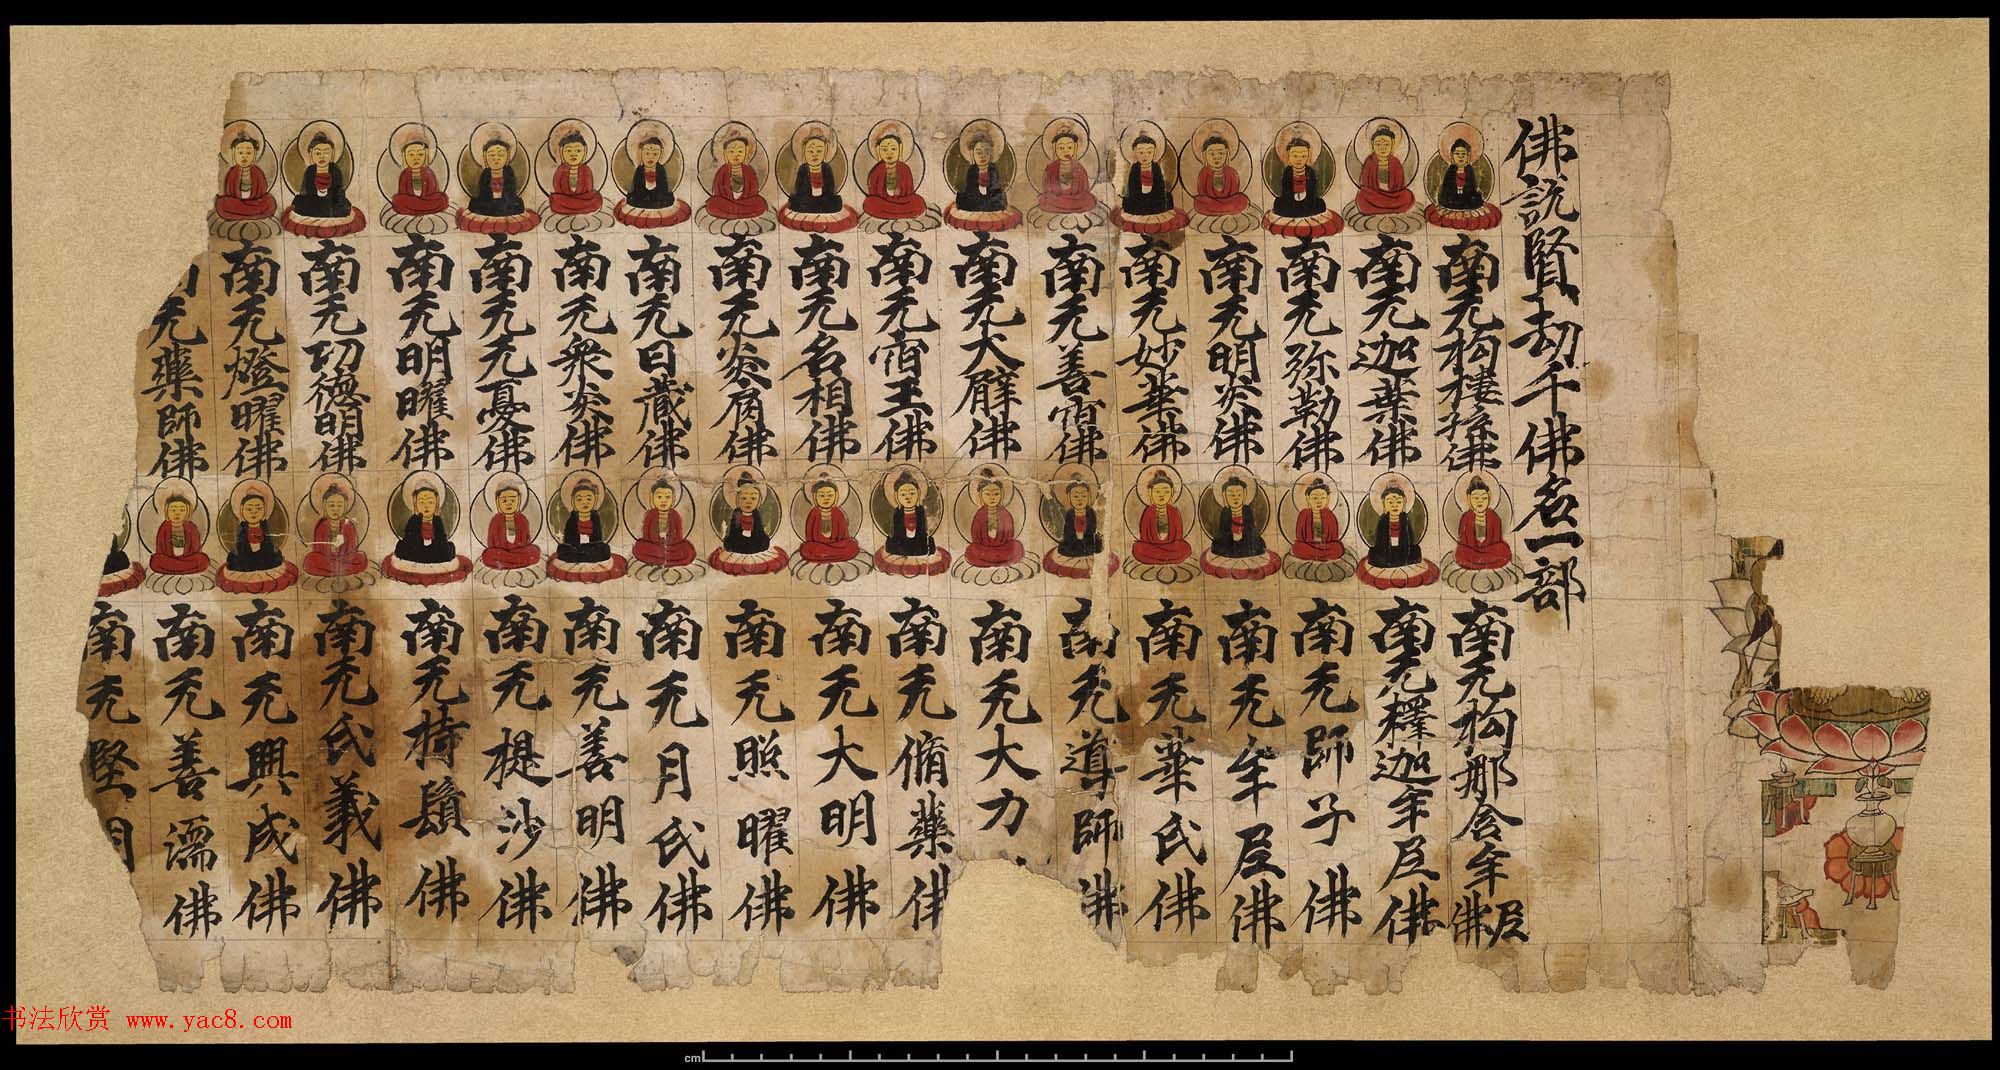 佛說賢劫千佛名一部
南无构樓孫佛
南无迦葉佛
南无弥勒佛
南无明炎佛
南无妙華佛
南无善宿佛
南无大臂佛
南无宿王佛
南无名相佛
南无炎肩佛
南无日藏佛
南无衆炎佛
南无无憂佛
南无明曜佛
南无功德明佛
南无燈曜佛
无藥師佛
南无构那含牟尼佛
南无釋迦牟尼佛
南无師子佛
南无牟尼佛
南无華氏佛
南无導師佛
南无大力
南无脩藥佛
南无大明佛
南无照曜佛
南无月氏佛
南无善明佛
南无提沙佛
南无持鬘佛
南无氏義佛
南无興成佛
南无善濡佛
南无堅
书法欣赏 www.yac8.com
cm